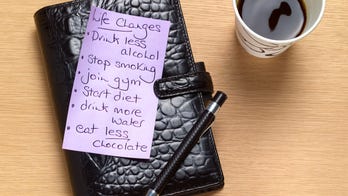 Life Changes
• Drink less
alcohol
• Stop smoking
• join gym
• Start diet
• drink more
water
• eat less
chocolate